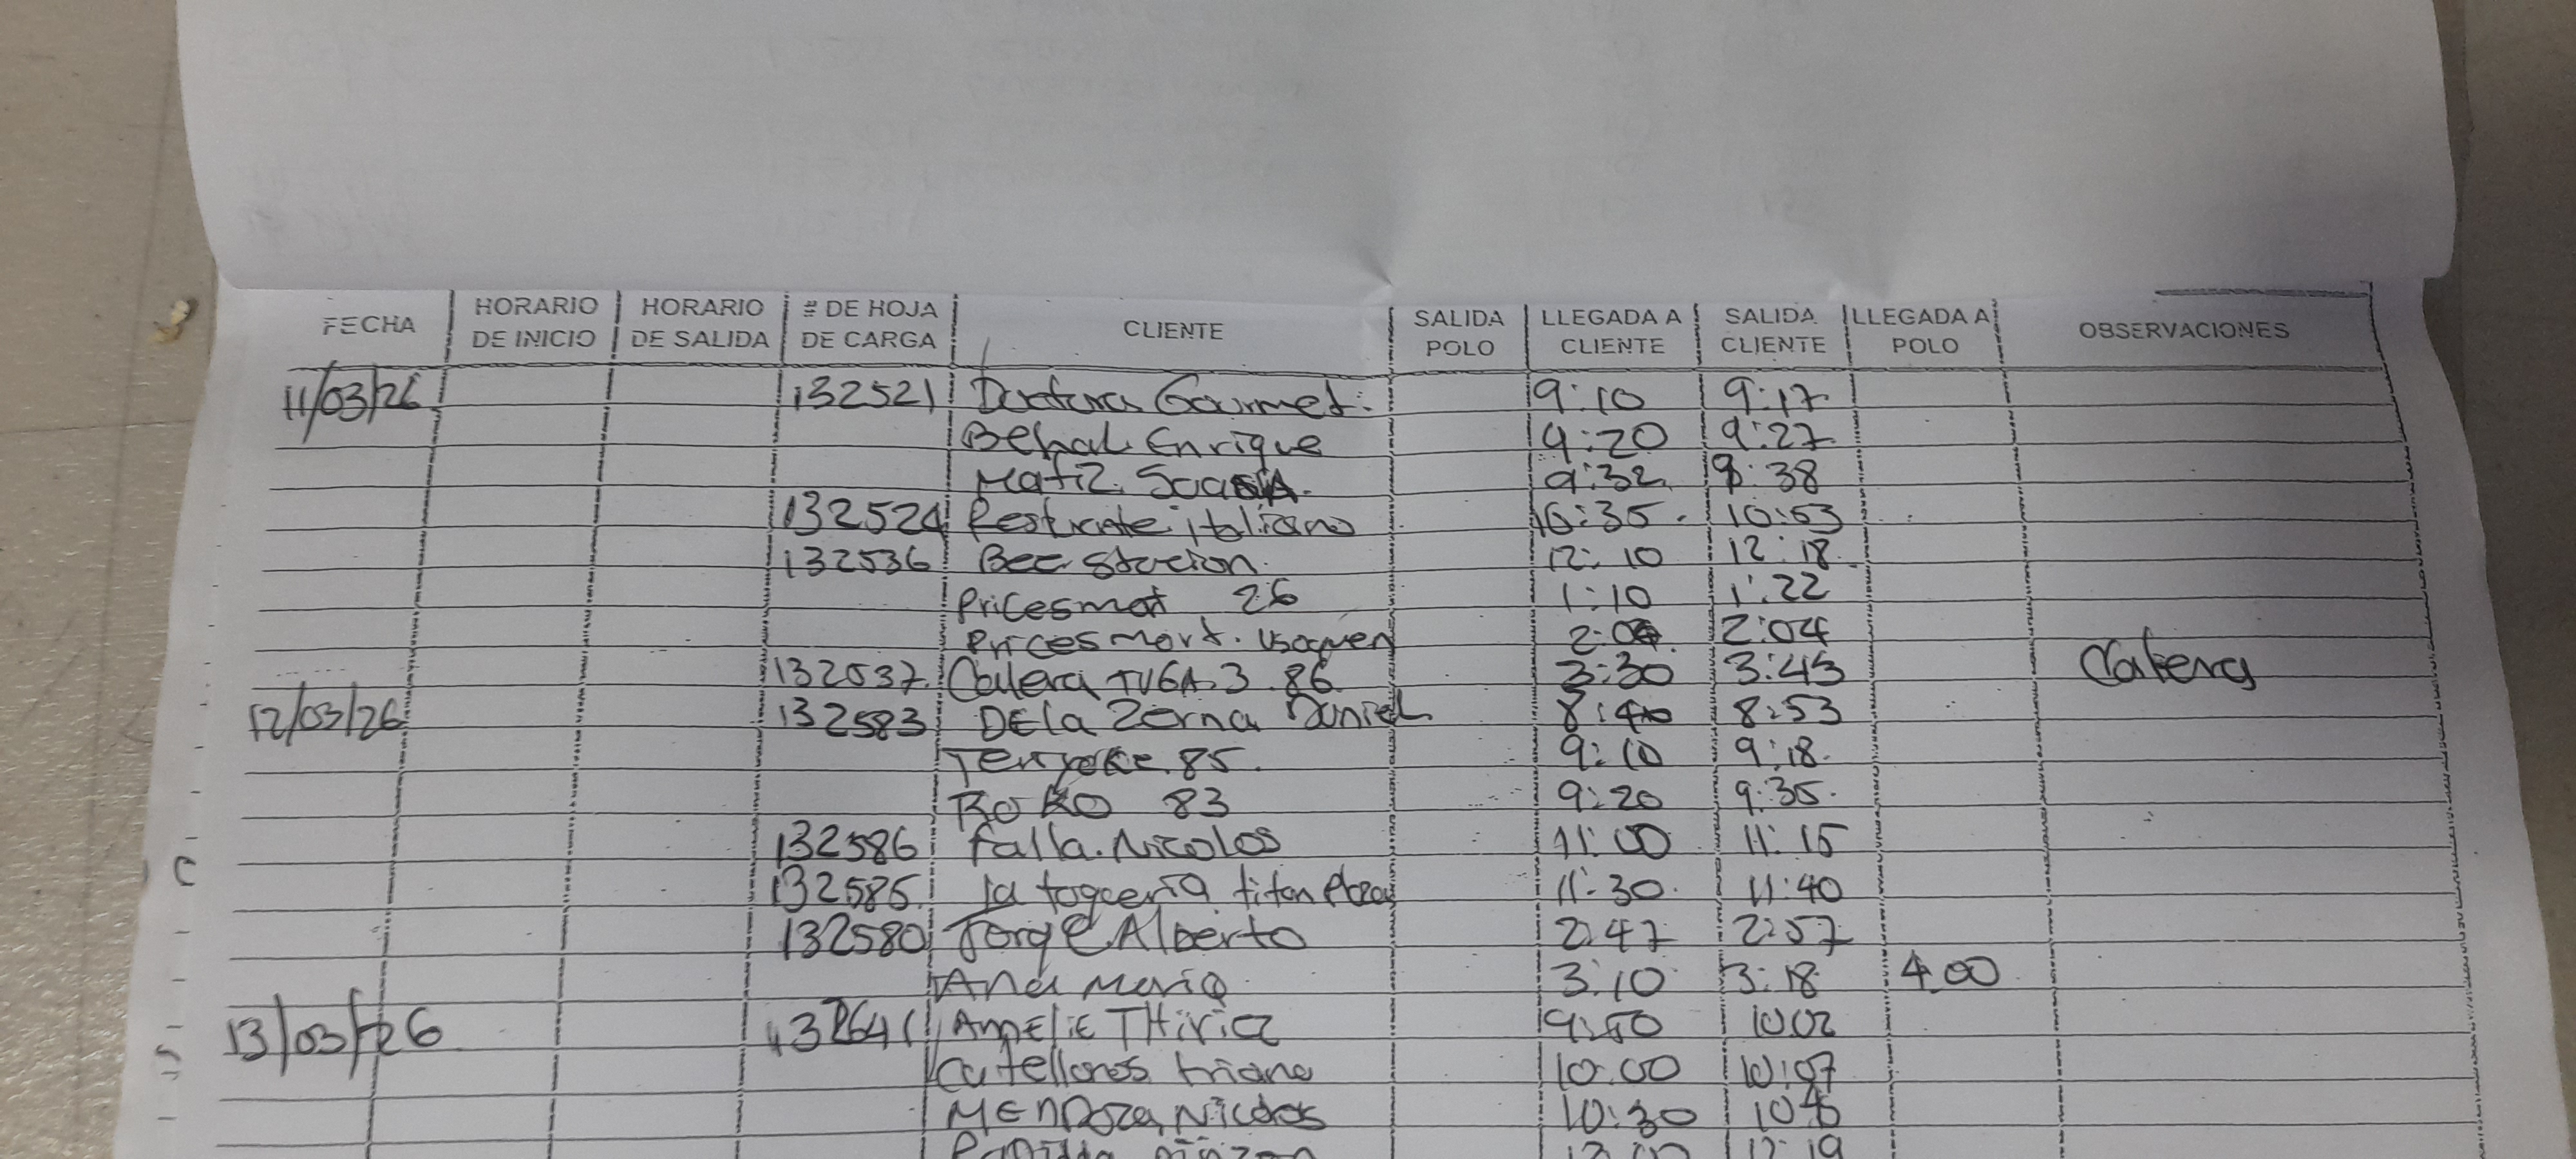 FECHA HORARIO DE INICIO HORARIO DE SALIDA # DE HOJA DE CARGA CLIENTE SALIDA POLO LLEGADA A CLIENTE SALIDA CLIENTE LLEGADA A POLO OBSERVACIONES
11/03/26 132521 Gourmet. 9:10 9:17
Enrique 9:20 9:27
9:32 9:38
132524 italiano 10:35 10:53
132536 12:10 12:18
26 1:10 1:22
usaquen 2:04
132537 Calera 3 86 3:30 3:45
12/03/26 132583 DE la Daniel 8:40 8:53
85 9:10 9:18
83 9:20 9:35
132586 Falla Nicolos 11:00 11:15
132585 la titan 11:30 11:40
132580 Jorge Alberto 2:47 2:57
Ana Maria 3:10 3:18 4:00
13/03/26 132641 AMELIE THIRIA 9:50 10:02
triana 10:00 10:07
MENDOZA 10:30
12:19